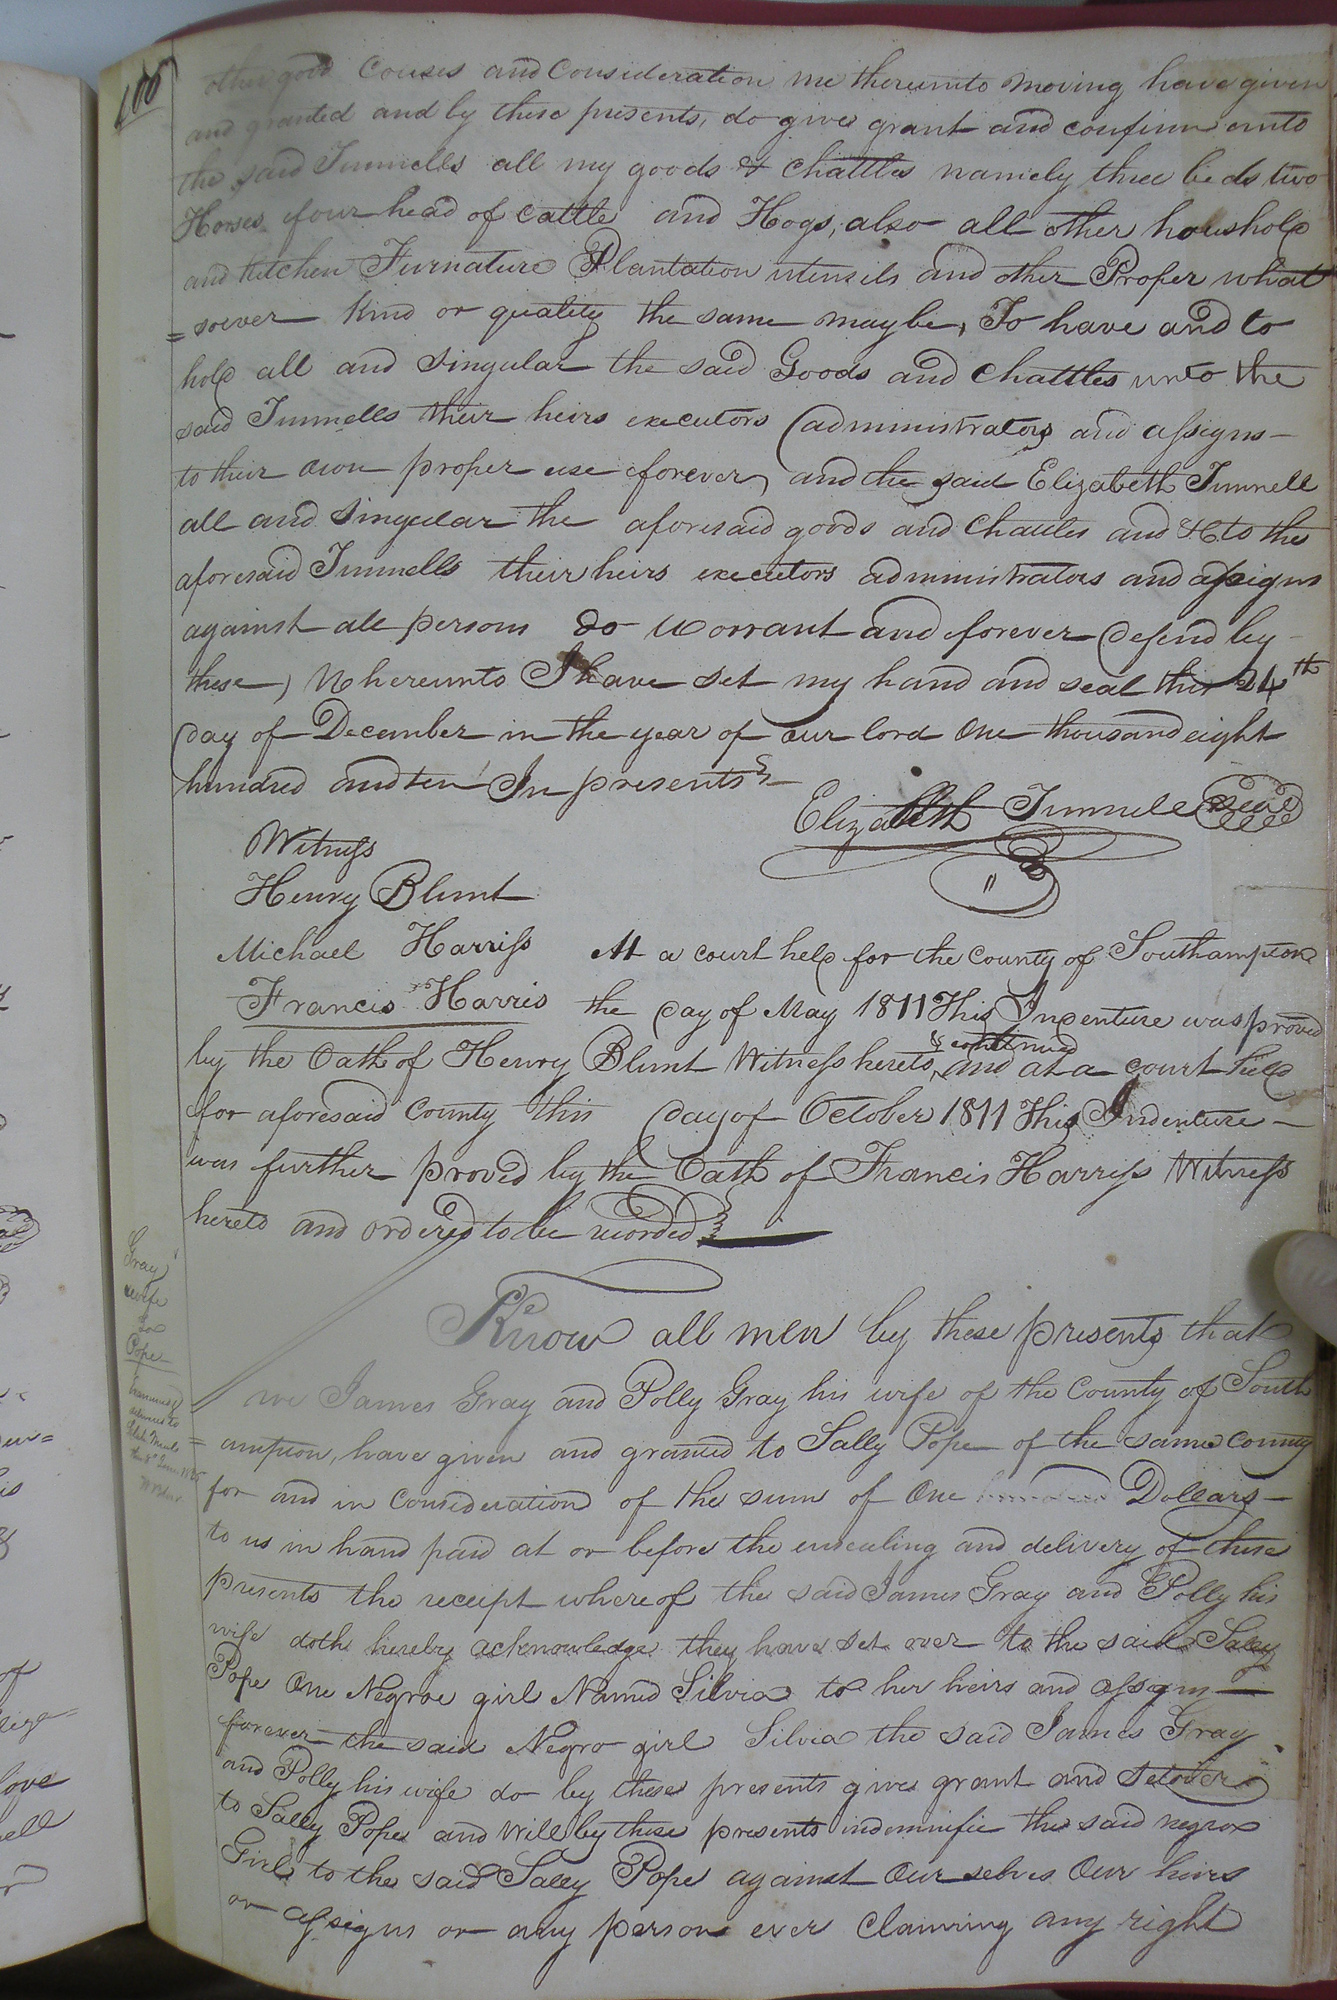 100
other good Causes and Consideration me thereunto moving have given
and granted and by these presents, do give grant and confirm unto
the said Tunnells all my goods & Chattles namely three beds two
Horses four head of Cattle and Hogs, also all other houshold
and kitchen Furnature Plantation utensils and other Proper what
= soever kind or quality the same maybe, To have and to
hold all and Singular the said Goods and Chattles unto the
said Tunnells their heirs executors administrators and assigns
to their own proper use forever, and the said Elizabeth Tunnell
all and Singular the aforesaid goods and Chattles and to the
aforesaid Tunnells their heirs executors administrators and assigns
against all persons do Warrant and forever Defend by
these, Whereunto I have set my hand and seal this 24th
day of December in the year of our lord One thousand eight
hundred and ten In presents
Elizabeth Tunnell Seal
Witness
Henry Blunt
Michael Harriss
Francis Harris
At a court held for the County of Southampton
the day of May 1811 This Indenture was proved
by the Oath of Henry Blunt Witness hereto, & continued and at a court held
for aforesaid County this day of October 1811 This Indenture
was further proved by the Oath of Francis Harriss Witness
hereto and ordered to be recorded
Gray
wife
to
Pope
Know all men by these presents that
we James Gray and Polly Gray his wife of the County of South
= ampton, have given and granted to Sally Pope of the same County
for and in Consideration of the sum of One hundred Dollars
to us in hand paid at or before the ensealing and delivery of these
presents the receipt whereof the said James Gray and Polly his
wife doth hereby acknowledge they have set over to the said Sally
Pope One Negroe girl Named Silvia to her heirs and assigns
forever the said Negro girl Silvia the said James Gray
and Polly his wife do by these presents give grant and setover
to Sally Pope and will by these presents indemnifie the said negro
Girl to the said Sally Pope against Our selves Our heirs
or assigns or any person ever Claiming any right